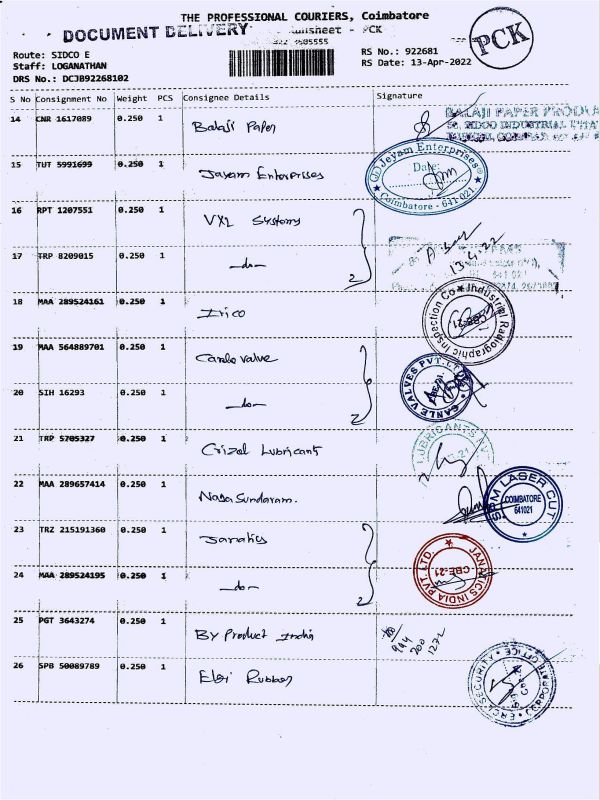 THE PROFESSIONAL COURIERS, Coimbatore
DOCUMENT DELIVERY
PCK
PCK
Route: SIDCO E
RS No.: 922681
Staff: LOGANATHAN
RS Date: 13-Apr-2022
DRS No.: DCJB92268102
S No Consignment No Weight PCS Consignee Details Signature
14 CNR 1617089 0.250 1 Balaji Paper
BALAJI PAPER
15 TUT 5991699 0.250 1 Jayam Enterprises
Jeyam Enterprises
Date:
Coimbatore - 641 021
16 RPT 1207551 0.250 1 VXL Systems
17 TRP 8209015 0.250 1 -do- 2
13.4.22
18 MAA 289524161 0.250 1 Irico
Industrial Radiographic Inspection Co
CBE-21
19 MAA 564889701 0.250 1 Canle valve
20 SIH 16293 0.250 1 -do- 2
CANLE VALVES PVT. LTD.
21 TRP 5705327 0.250 1 Crizol Lubricant
LUBRICANTS
22 MAA 289657414 0.250 1 Naga Sundaram.
SBM LASER CUT
COIMBATORE
641021
23 TRZ 215191360 0.250 1 Janatics
24 MAA 289524195 0.250 1 -do- 2
JANATICS INDIA PVT. LTD.
CBE-21
25 PGT 3643274 0.250 1 By Product India
994
700
1272
26 SPB 50089789 0.250 1 Elgi Rubber
SECURITY
CORPORATE OFFICE